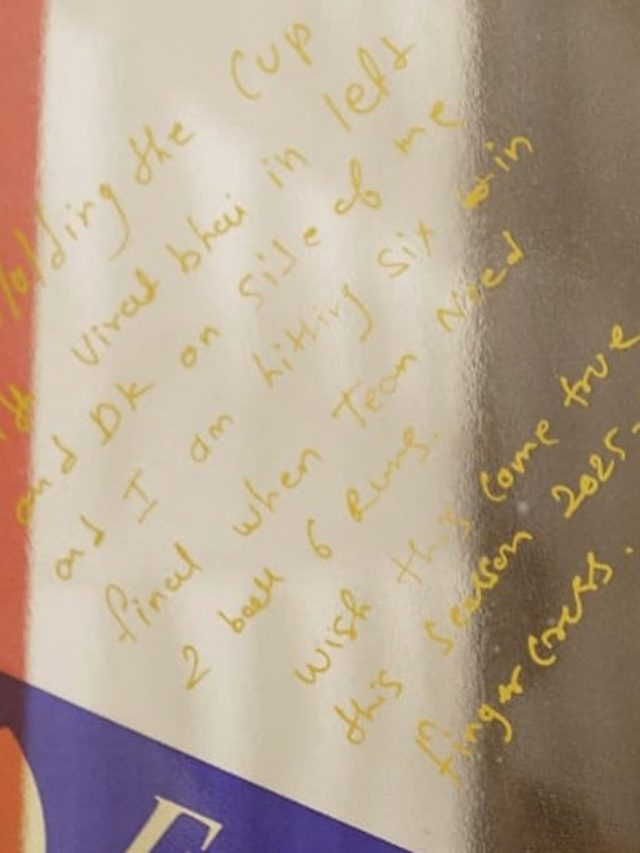 Holding the Cup
with Virat bhai in left
and DK on side of me
and I am hitting six in
final when Team Need
2 ball 6 Runs.
wish this come true
this season 2025.
finger cross.